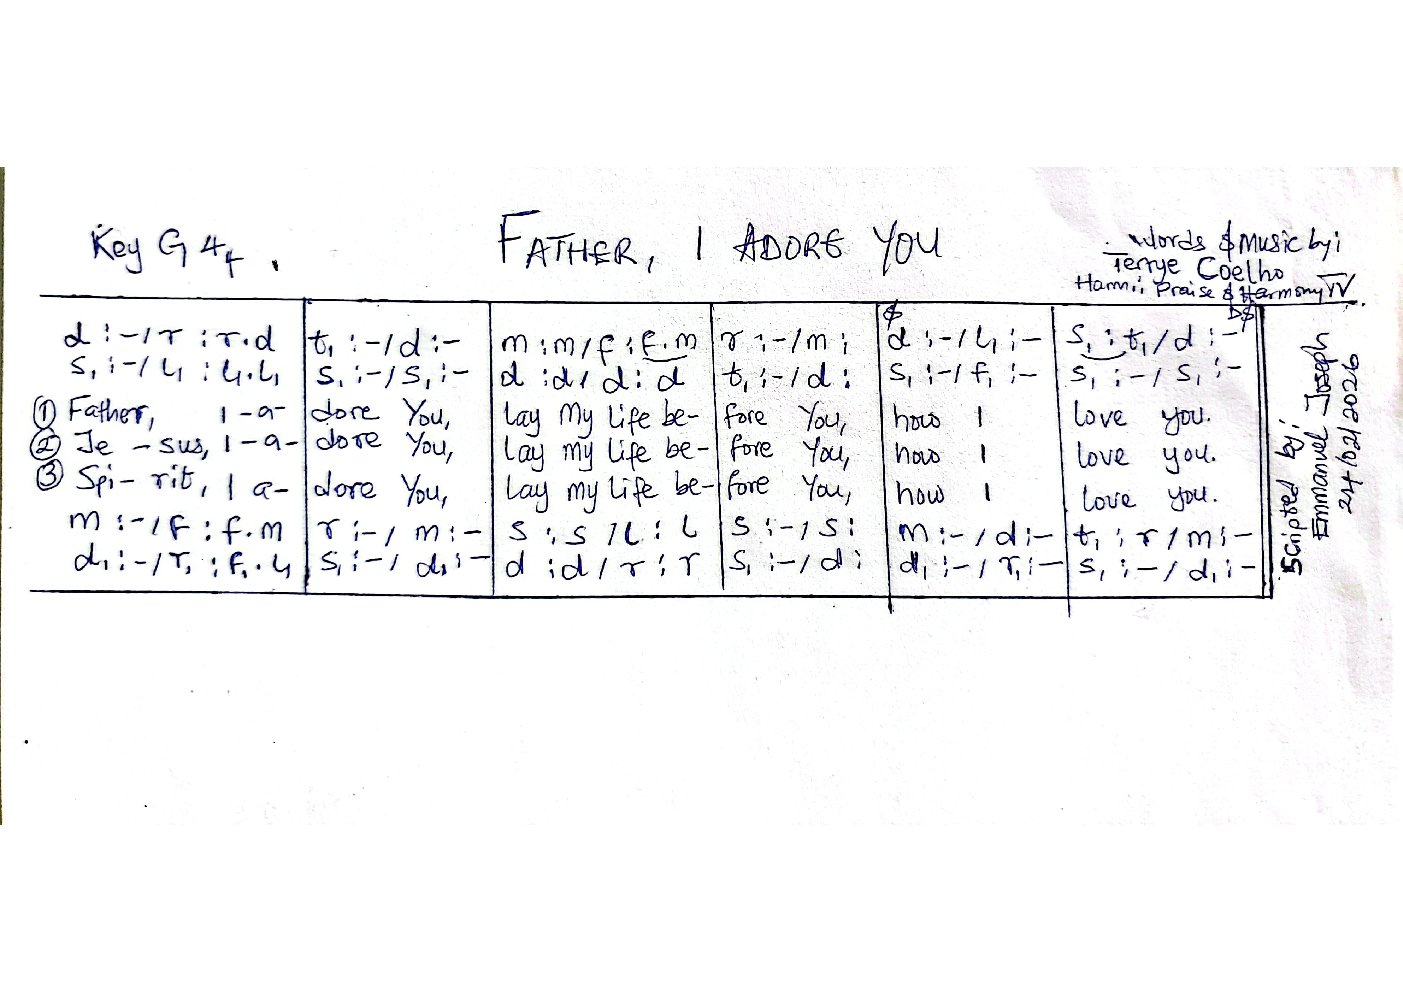 Key G 4/4. FATHER, I ADORE YOU
Words & Music by:
Terrye Coelho
Harm:: Praise & Harmony TV.
𝄋 D𝄋
d :-/ r : r.d | t₁ :-/ d :- | m : m/ f : f.m | r :-/ m : | d :-/ l₁ :- | s₁ : t₁/ d :-
s₁ :-/ l₁ : l₁.l₁ | s₁ :-/ s₁ :- | d : d/ d : d | t₁ :-/ d : | s₁ :-/ f₁ :- | s₁ :-/ s₁ :-
① Father, I-a- | dore You, | lay My Life be- | fore You, | how I | love you.
② Je - sus, I-a- | dore You, | lay my life be- | fore You, | how I | love you.
③ Spi- rit, I a- | dore You, | Lay my Life be- | fore You, | how I | love you.
m :-/ f : f.m | r :-/ m :- | s : s / l : l | s :-/ s : | m :-/ d :- | t₁ : r / m :-
d₁ :-/ r₁ : f₁.l₁ | s₁ :-/ d₁ :- | d : d/ r : r | s₁ :-/ d : | d₁ :-/ r₁ :- | s₁ :-/ d₁ :-
Scripted by:
Emmanuel Joseph
24/02/2026